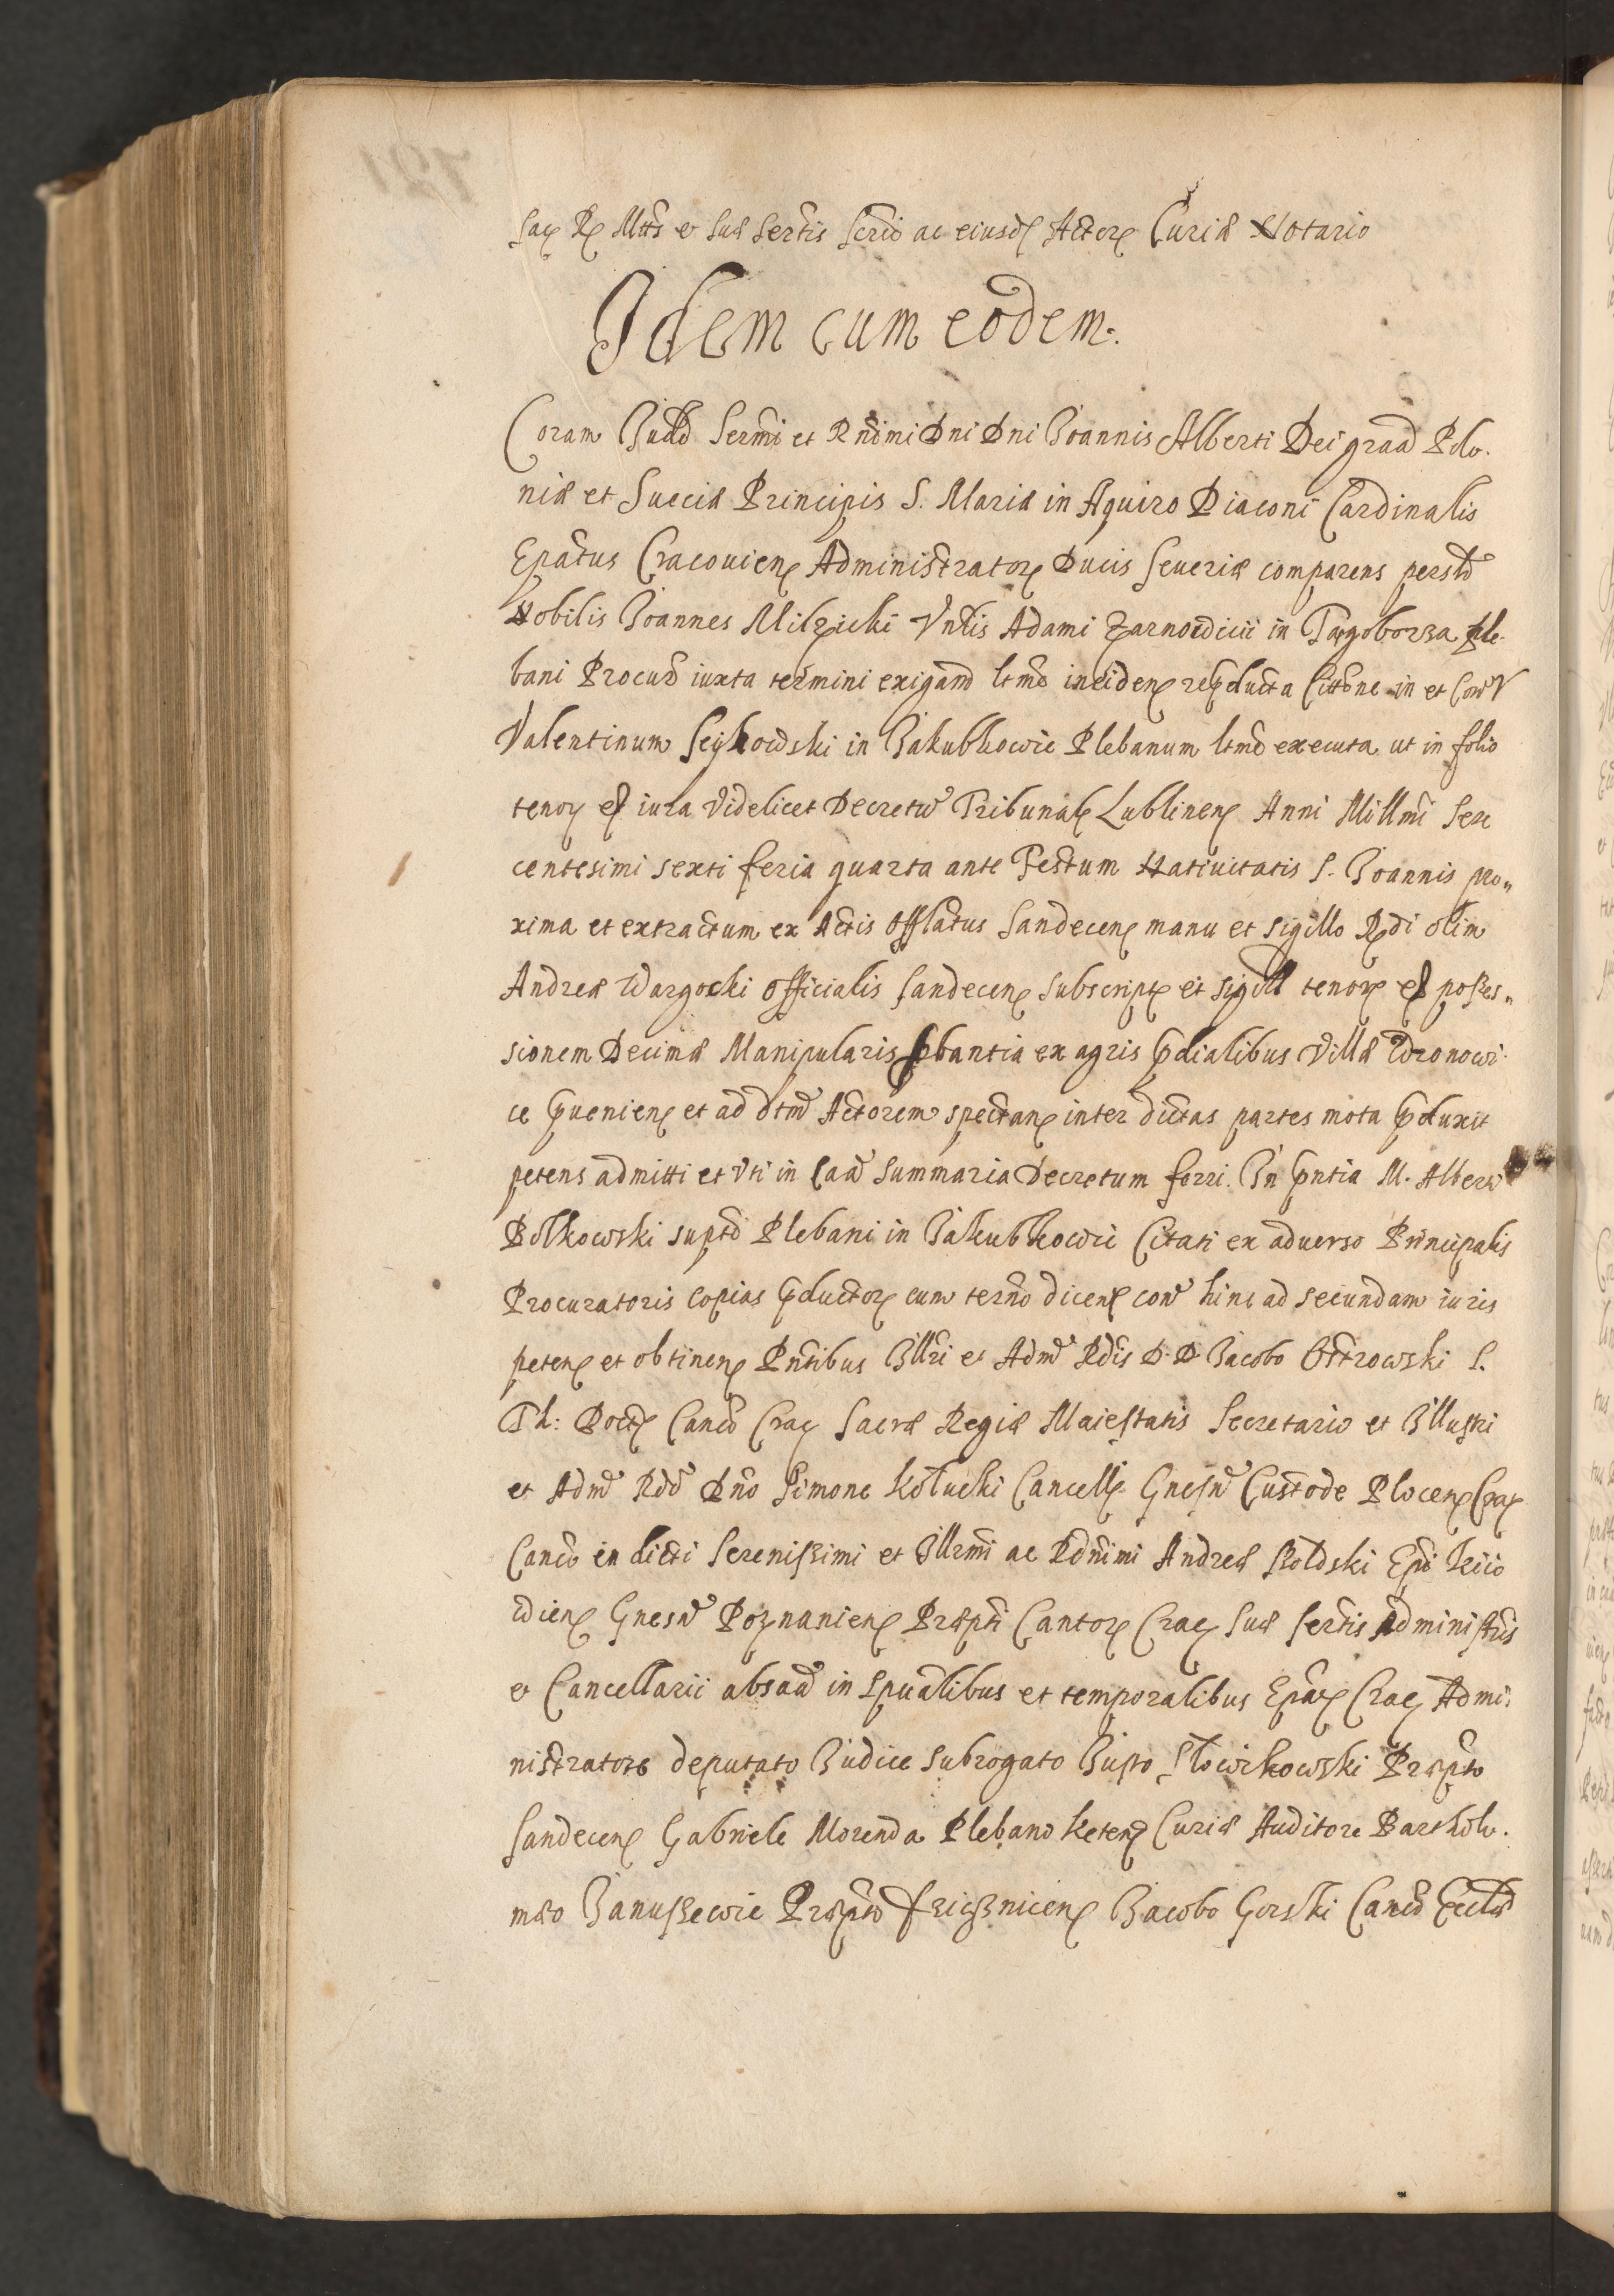 Sac R Mtis et Suæ Sertis Scrio ac eiusd Actor Curiæ Notario
Idem cum eodem.
Coram Judd Sermi et Rndmi Dni Dni Joannis Alberti Dei graa Polo.
niæ et Sueciæ Principis S. Mariæ in Aquiro Diaconi Cardinalis
Epatus Cracouien Administrator Ducis Seueriæ comparens
Nobilis Joannes Milzicki Adami in ple.
bani Procur iuxta termini exigand ltme inciden repducta Citone in et
Valentinum in Jakubkowic Plebanum ltme executa ut in folio
tenor iura Videlicet Decretu Tribunal Lublinen Anni Millmi Sex
centesimi sexti feria quarta ante Festum Natiuitatis S. Joannis pro„
xima et extractum ex Actis Offlatus Sandecen manu et sigillo Rdi olim
Andreæ Wargocki Officialis Sandecen subscript et sigill tenor posses„
sionem Decimæ Manipularis pbantia ex agris pdialibus Villæ Wronowi
ce puenien et ad dtm Actorem spectan inter dictas partes mota pduxit
petens admitti et Vti in caa Summaria Decretum ferri. In pntia M. Alberti
Polkowski supto Plebani in Jakubkowic Citati ex aduerso Principalis
Procuratoris copias pductor cum termo dicen con hinc ad secundam iuris
peten et obtinen Pntibus Illri et Adm Rdis D. D. Jacobo Ostrowski S.
Th: Doct Canco Crac Sacræ Regiæ Maiestatis Secretario et Illustri
et Adm Rdo Dno Simone Kołucki Cancell Gnesn Custode Plocen Crac
Canco in dicti Serenissimi et Illrmi ac Rdnimi Andreæ Szołdski Epi Kiio
wien Gnesn Poznanien Præpti Cantor Crac Suæ Sertis Administris
et Cancellarii absaa in spualibus et temporalibus Epat Crac Admi:
nistratore deputato Judice subrogato Justo Słowikowski Præpto
Sandecen Gabriele Morenda Plebano Keten Curiæ Auditore Bartholo.
mæo Januszewic Præpto Jacobo Gorski Canco Eccl